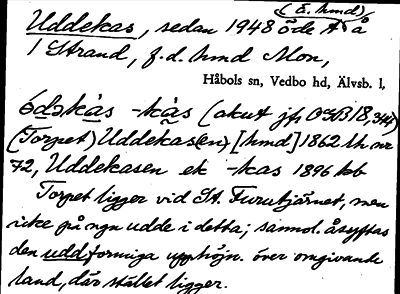 (E. hmd)
Uddekas, sedan 1948 öde A å
1 Strand, f.d. hmd Mon,
Håbols sn, Vedbo hd, Älvsb. l,
ódskås -kås (akut jfr OGB 18,
(Torpet) Uddekas(en) [hmd] 1862 lh nr
72, Uddekasen ek -kas 1896 kb
Torpet ligger vid St. Furutjärnet, men
icke på ngn udde i detta; sannol. åsyftas
den uddformiga upphöjn. över omgivande
land, där stället ligger.